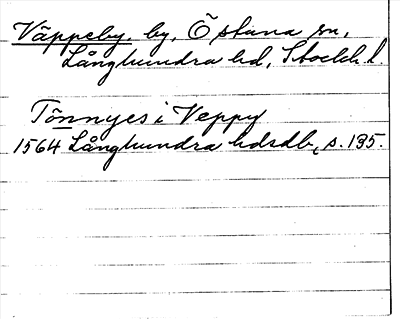 Väppeby, by, Östuna sn,
Långhundra hd, Stockh. l.
Tönnyes i Veppy
1564 Långhundra hdrdb, s. 135.